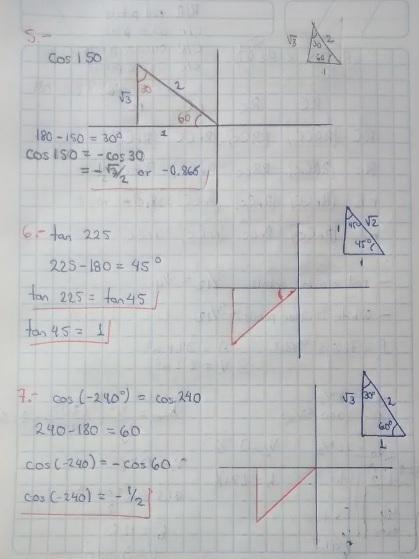 5.-
cos 150
√3 2
30
60
1
√3 2
30
60
1
180 - 150 = 30°
cos 150 = - cos 30
= - √3/2 or -0.866
6.- tan 225
225 - 180 = 45°
tan 225 = tan 45
tan 45 = 1
1 45° √2
45°
1
7.- cos (-240°) = cos 240
240 - 180 = 60
cos (-240) = - cos 60
cos (-240) = - 1/2
√3 30° 2
60°
1